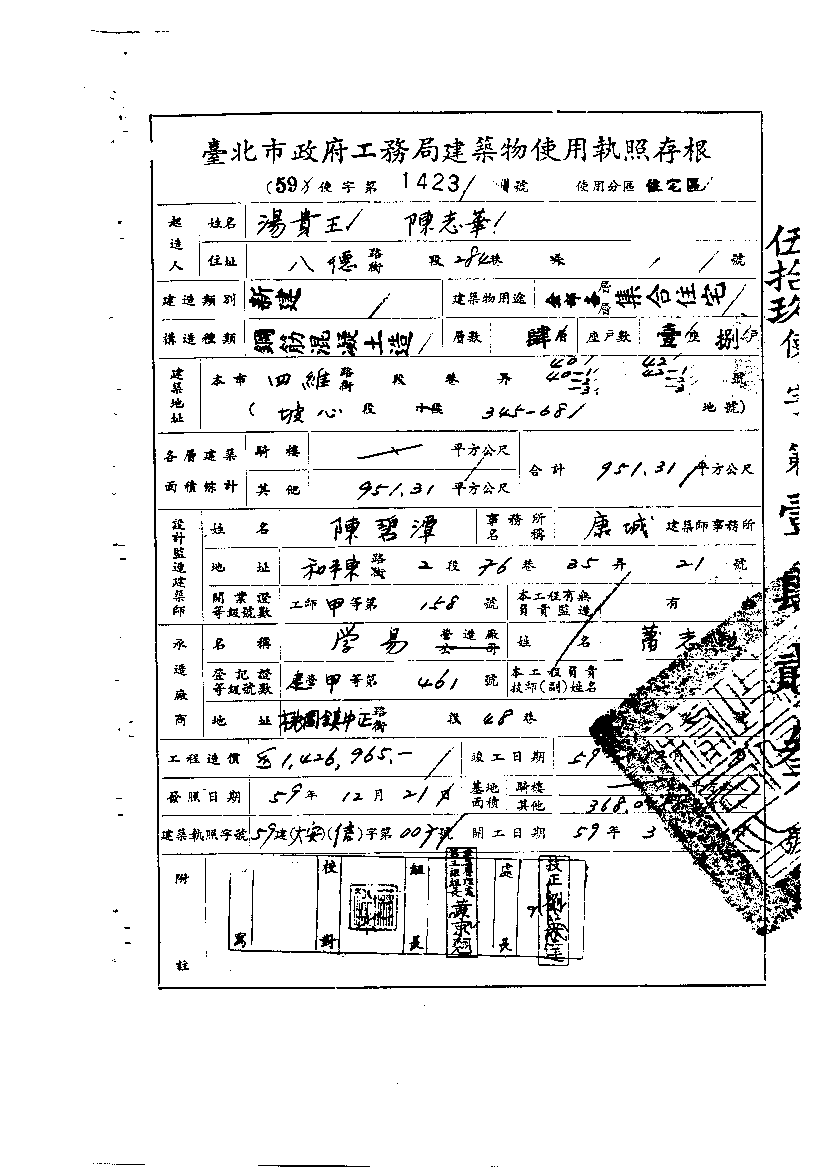 臺北市政府工務局建築物使用執照存根
(59)使字第 1423 號 使用分區 住宅區
起造人 姓名 湯貴王 陳志華
住址 八德 路街 段 284巷 號
建造類別 新建 建築物用途 層層 集合住宅
構造種類 鋼筋混凝土造 層數 肆層 座戶數 壹座 捌戶
建築地址 本市 四維 路街 段 巷 弄 號
(坡心 段 小段 345-68 地號)
各層建築面積總計 騎樓 平方公尺 合計 951.31 平方公尺
其他 951.31 平方公尺
設計監造建築師 姓名 陳碧潭 事務所名稱 康城 建築師事務所
地址 和平東 路街 2段 76巷 35弄 21號
開業證等級號數 工師 甲等第 158 號 本工程有無負責監造 有
承造廠商 名稱 学易 營造廠 姓名 蕭
登記證等級號數 甲等第 461 號 本工程負責技師(副)姓名
地址 桃園鎮中正 路街 段 48巷
工程造價 1,426,965.- 竣工日期 59
發照日期 59年 12月 21日 基地面積 騎樓
其他 368.0
建築執照字號 59建(大安)(信)字第 號 開工日期 59年 3
附註
校對
組長
處長
伍拾玖使字第壹
號